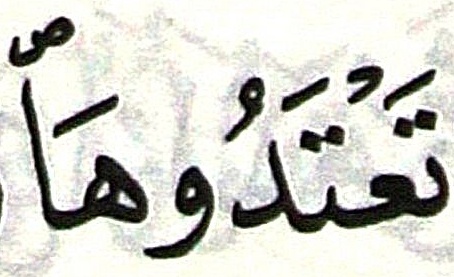 تَعْتَدُوهَاۖ